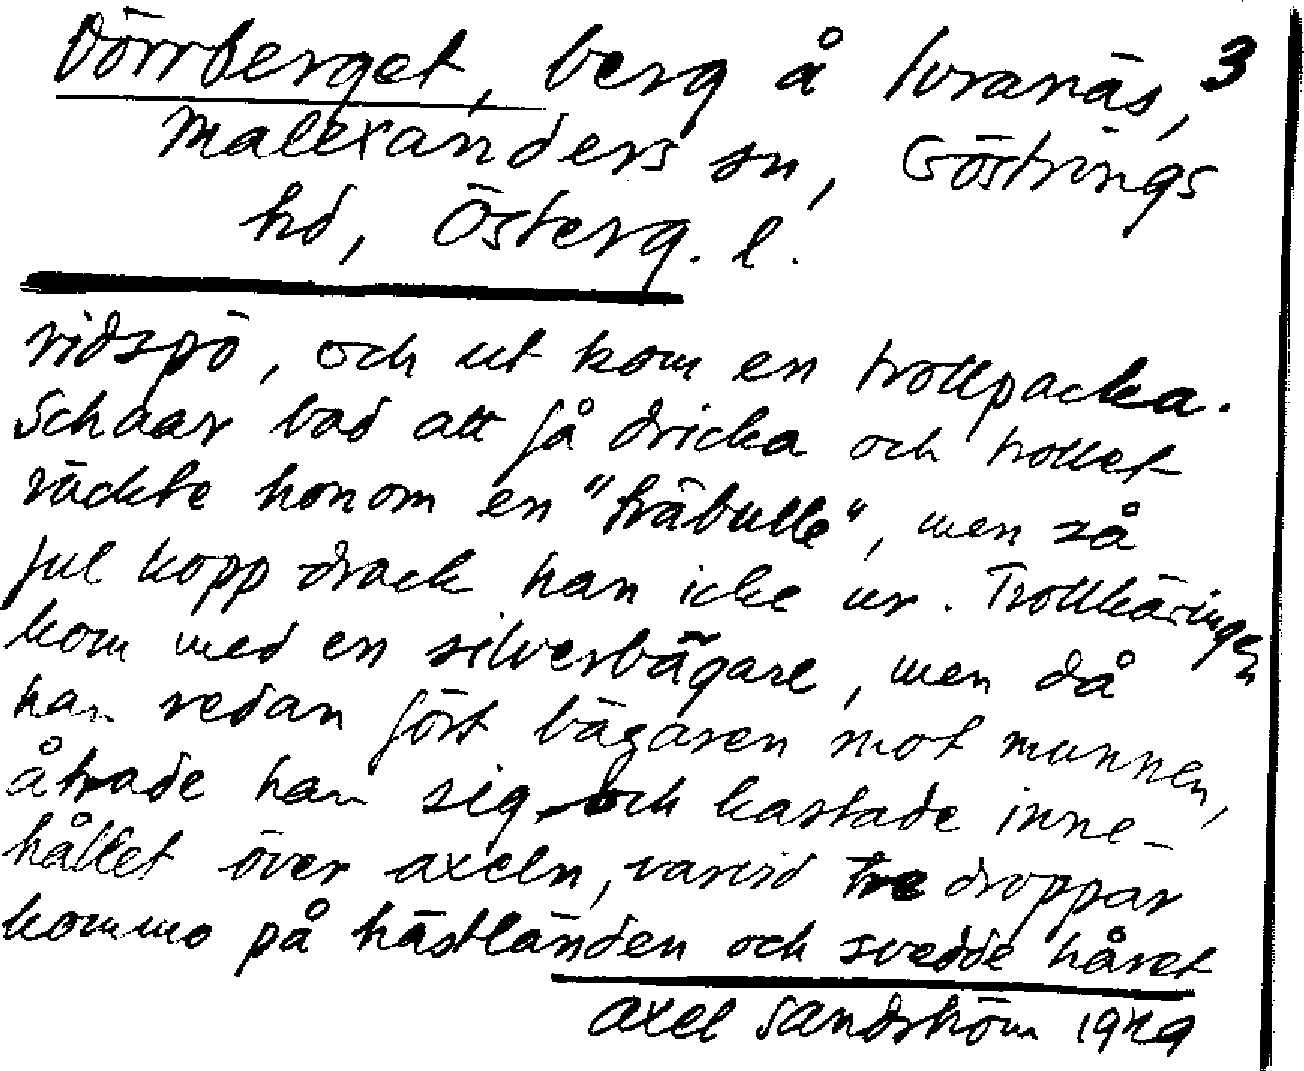 Dörrberget, berg å Ivranäs, 3
Malexanders sn, Göstrings
hd, Österg. l.
ridspö, och ut kom en trollpacka.
Schaar bad att få dricka och trollet
räckte honom en "träbulle", men så
ful kopp drack han icke ur. Trollkäringen
kom med en silverbägare, men då
han redan fört bägaren mot munnen,
åtrade han sig och kastade inne-
hållet över axeln, varvid tre droppar
kommo på hästländen och svedde håret
Axel Sandström 1929